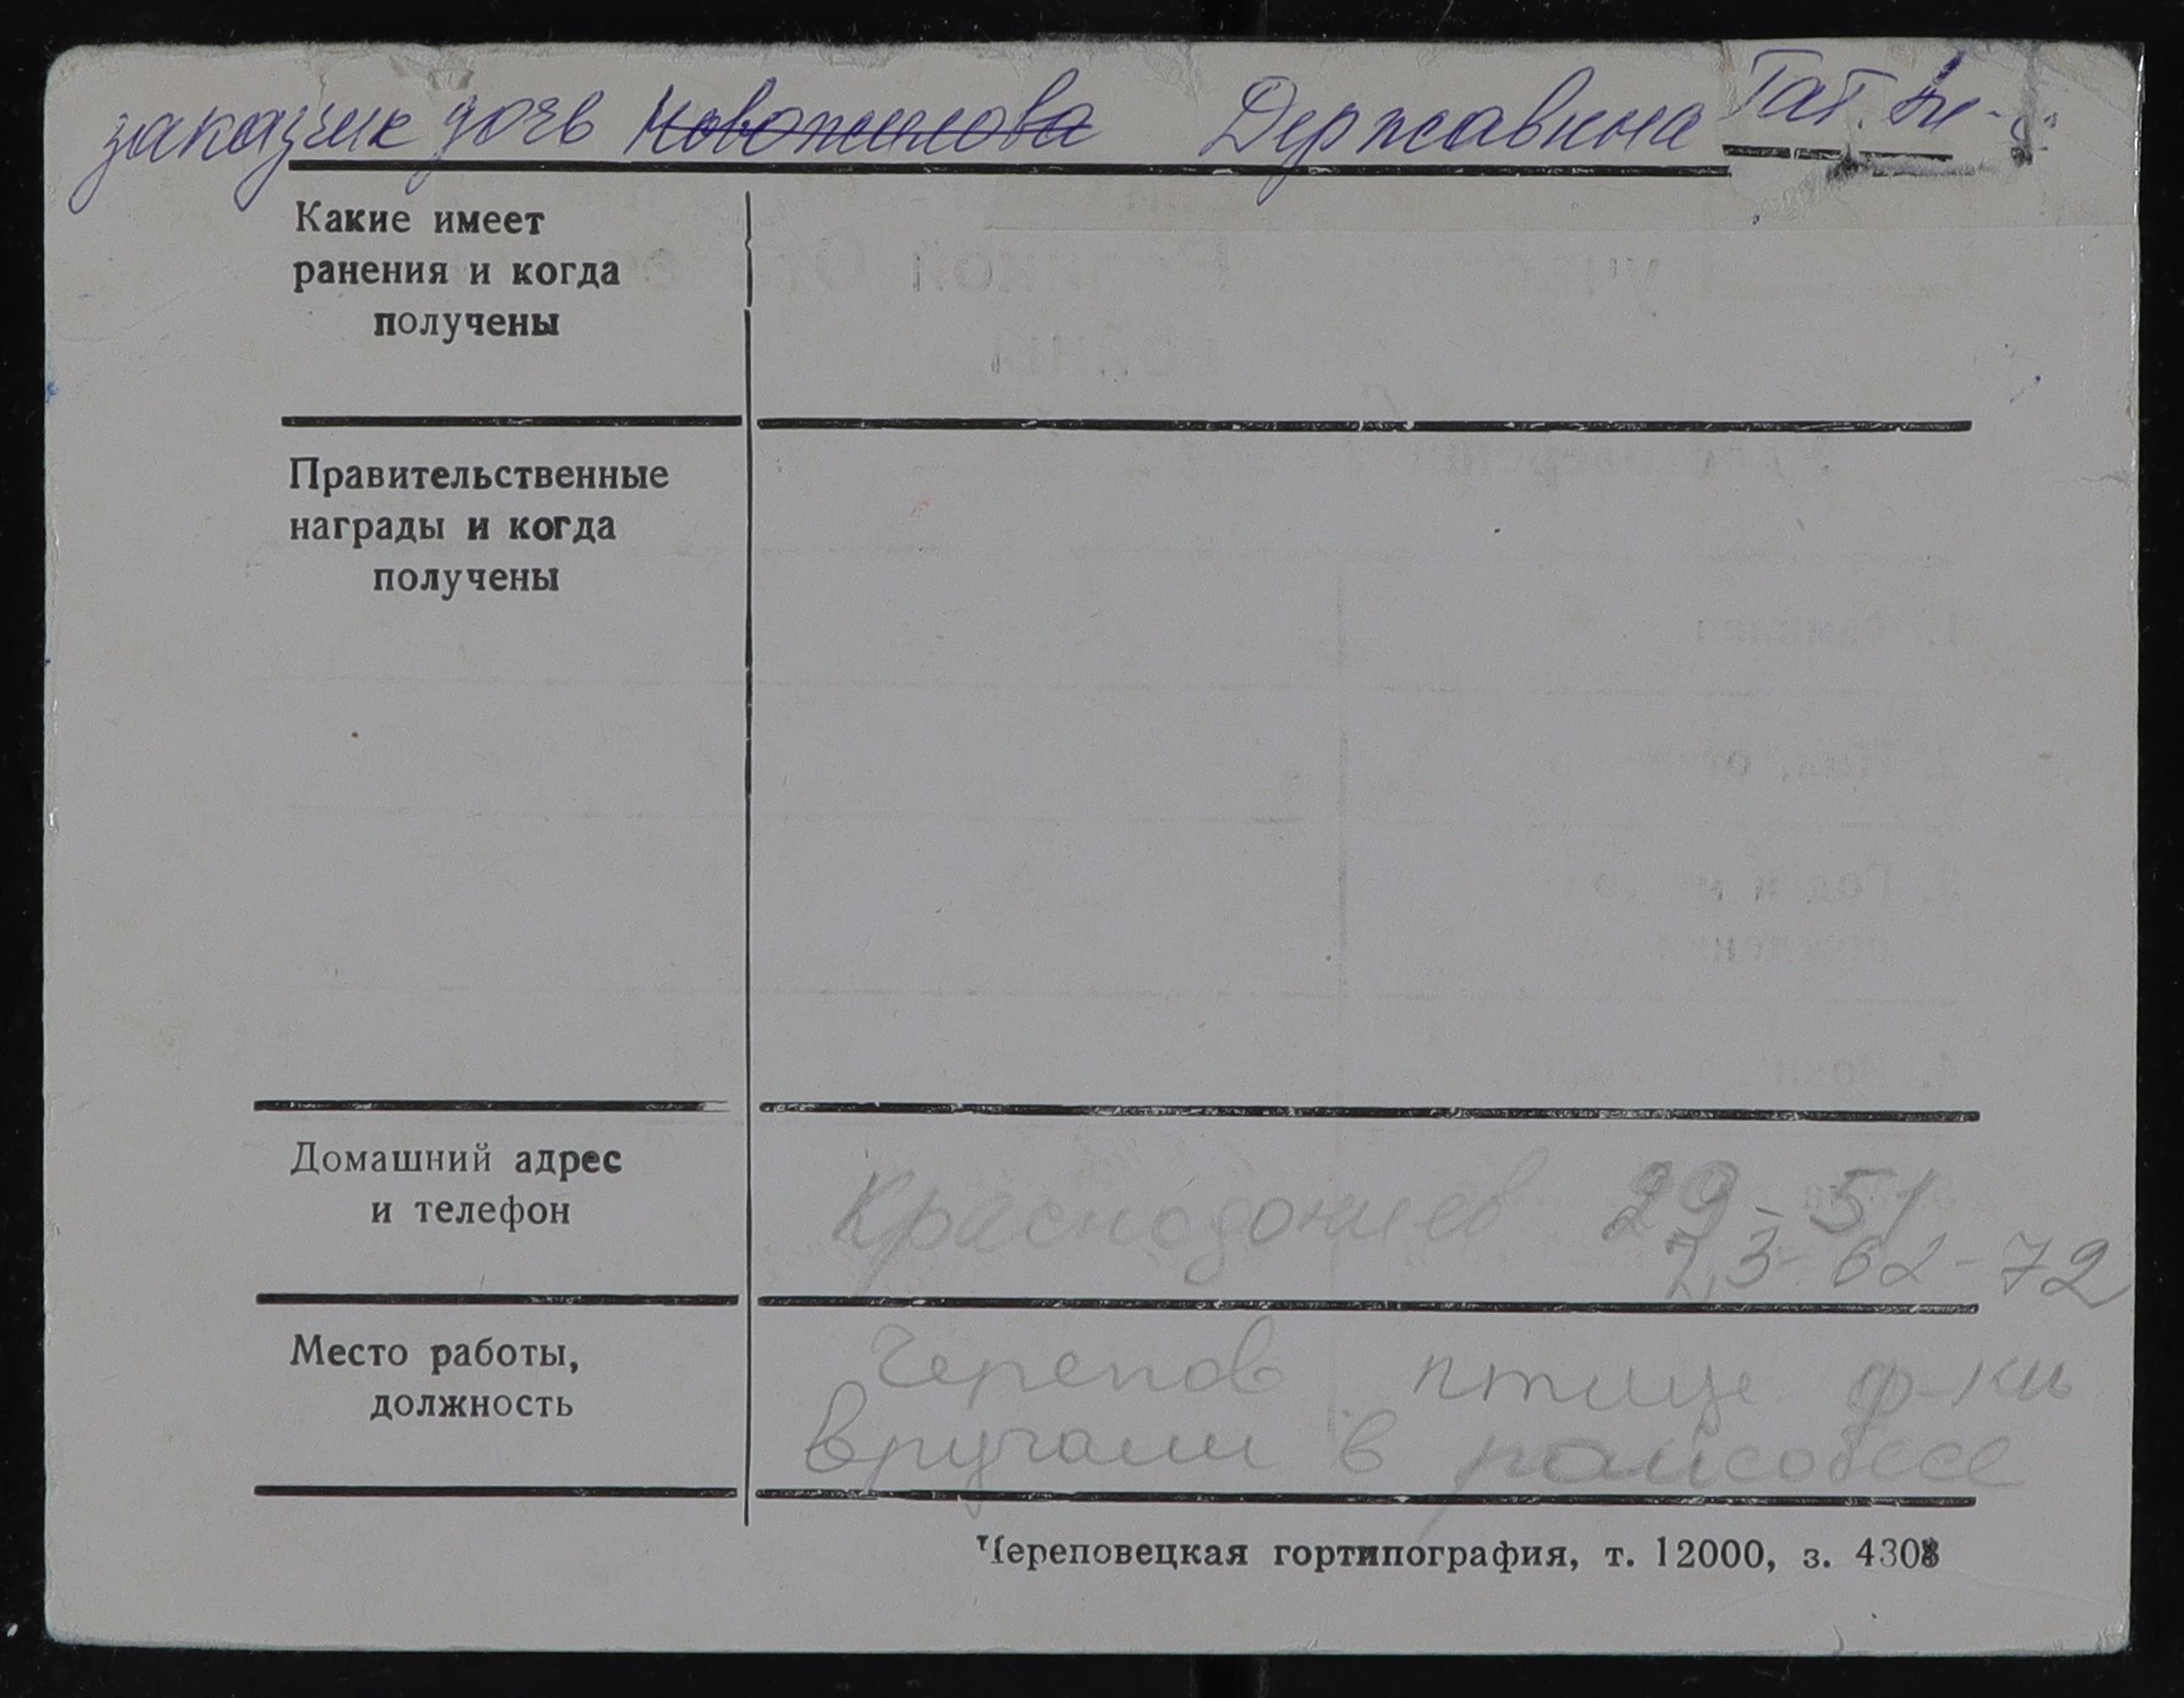 заказчик дочь Новожилова Державина Тат.
Какие имеет
ранения и когда
получены
Правительственные
награды и когда
получены
Домашний адрес
и телефон
Краснодонцев 29-51
7,3-62-72
Место работы,
должность
Черепов птице ф-ки
вручали в райсобесе
Череповецкая гортипография, т. 12000, з. 4303